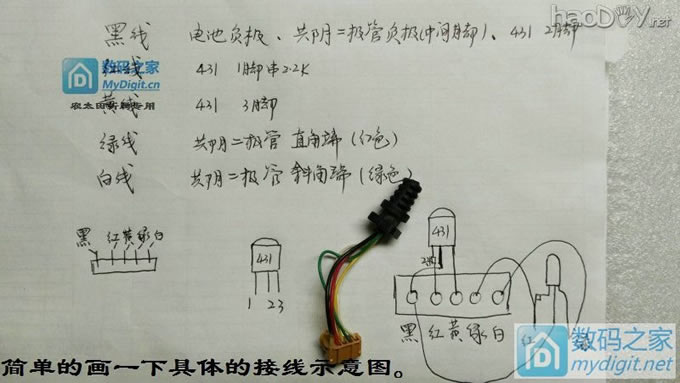 haoDIY.net
黑线 电池负极、共阴二极管负极(中间脚)、431 2脚
红线 431 1脚串2.2K
数码之家
MyDigit.cn
黄线 431 3脚
绿线 共阴二极管 直角端 (红色)
白线 共阴二极管 斜角端 (绿色)
黑 红黄绿白
431
1 2 3
431
黑 红 黄 绿 白
红
数码之家
mydigit.net
简单的画一下具体的接线示意图。